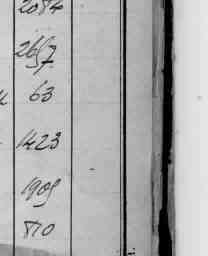 2084
2657
63
1423
1909
870